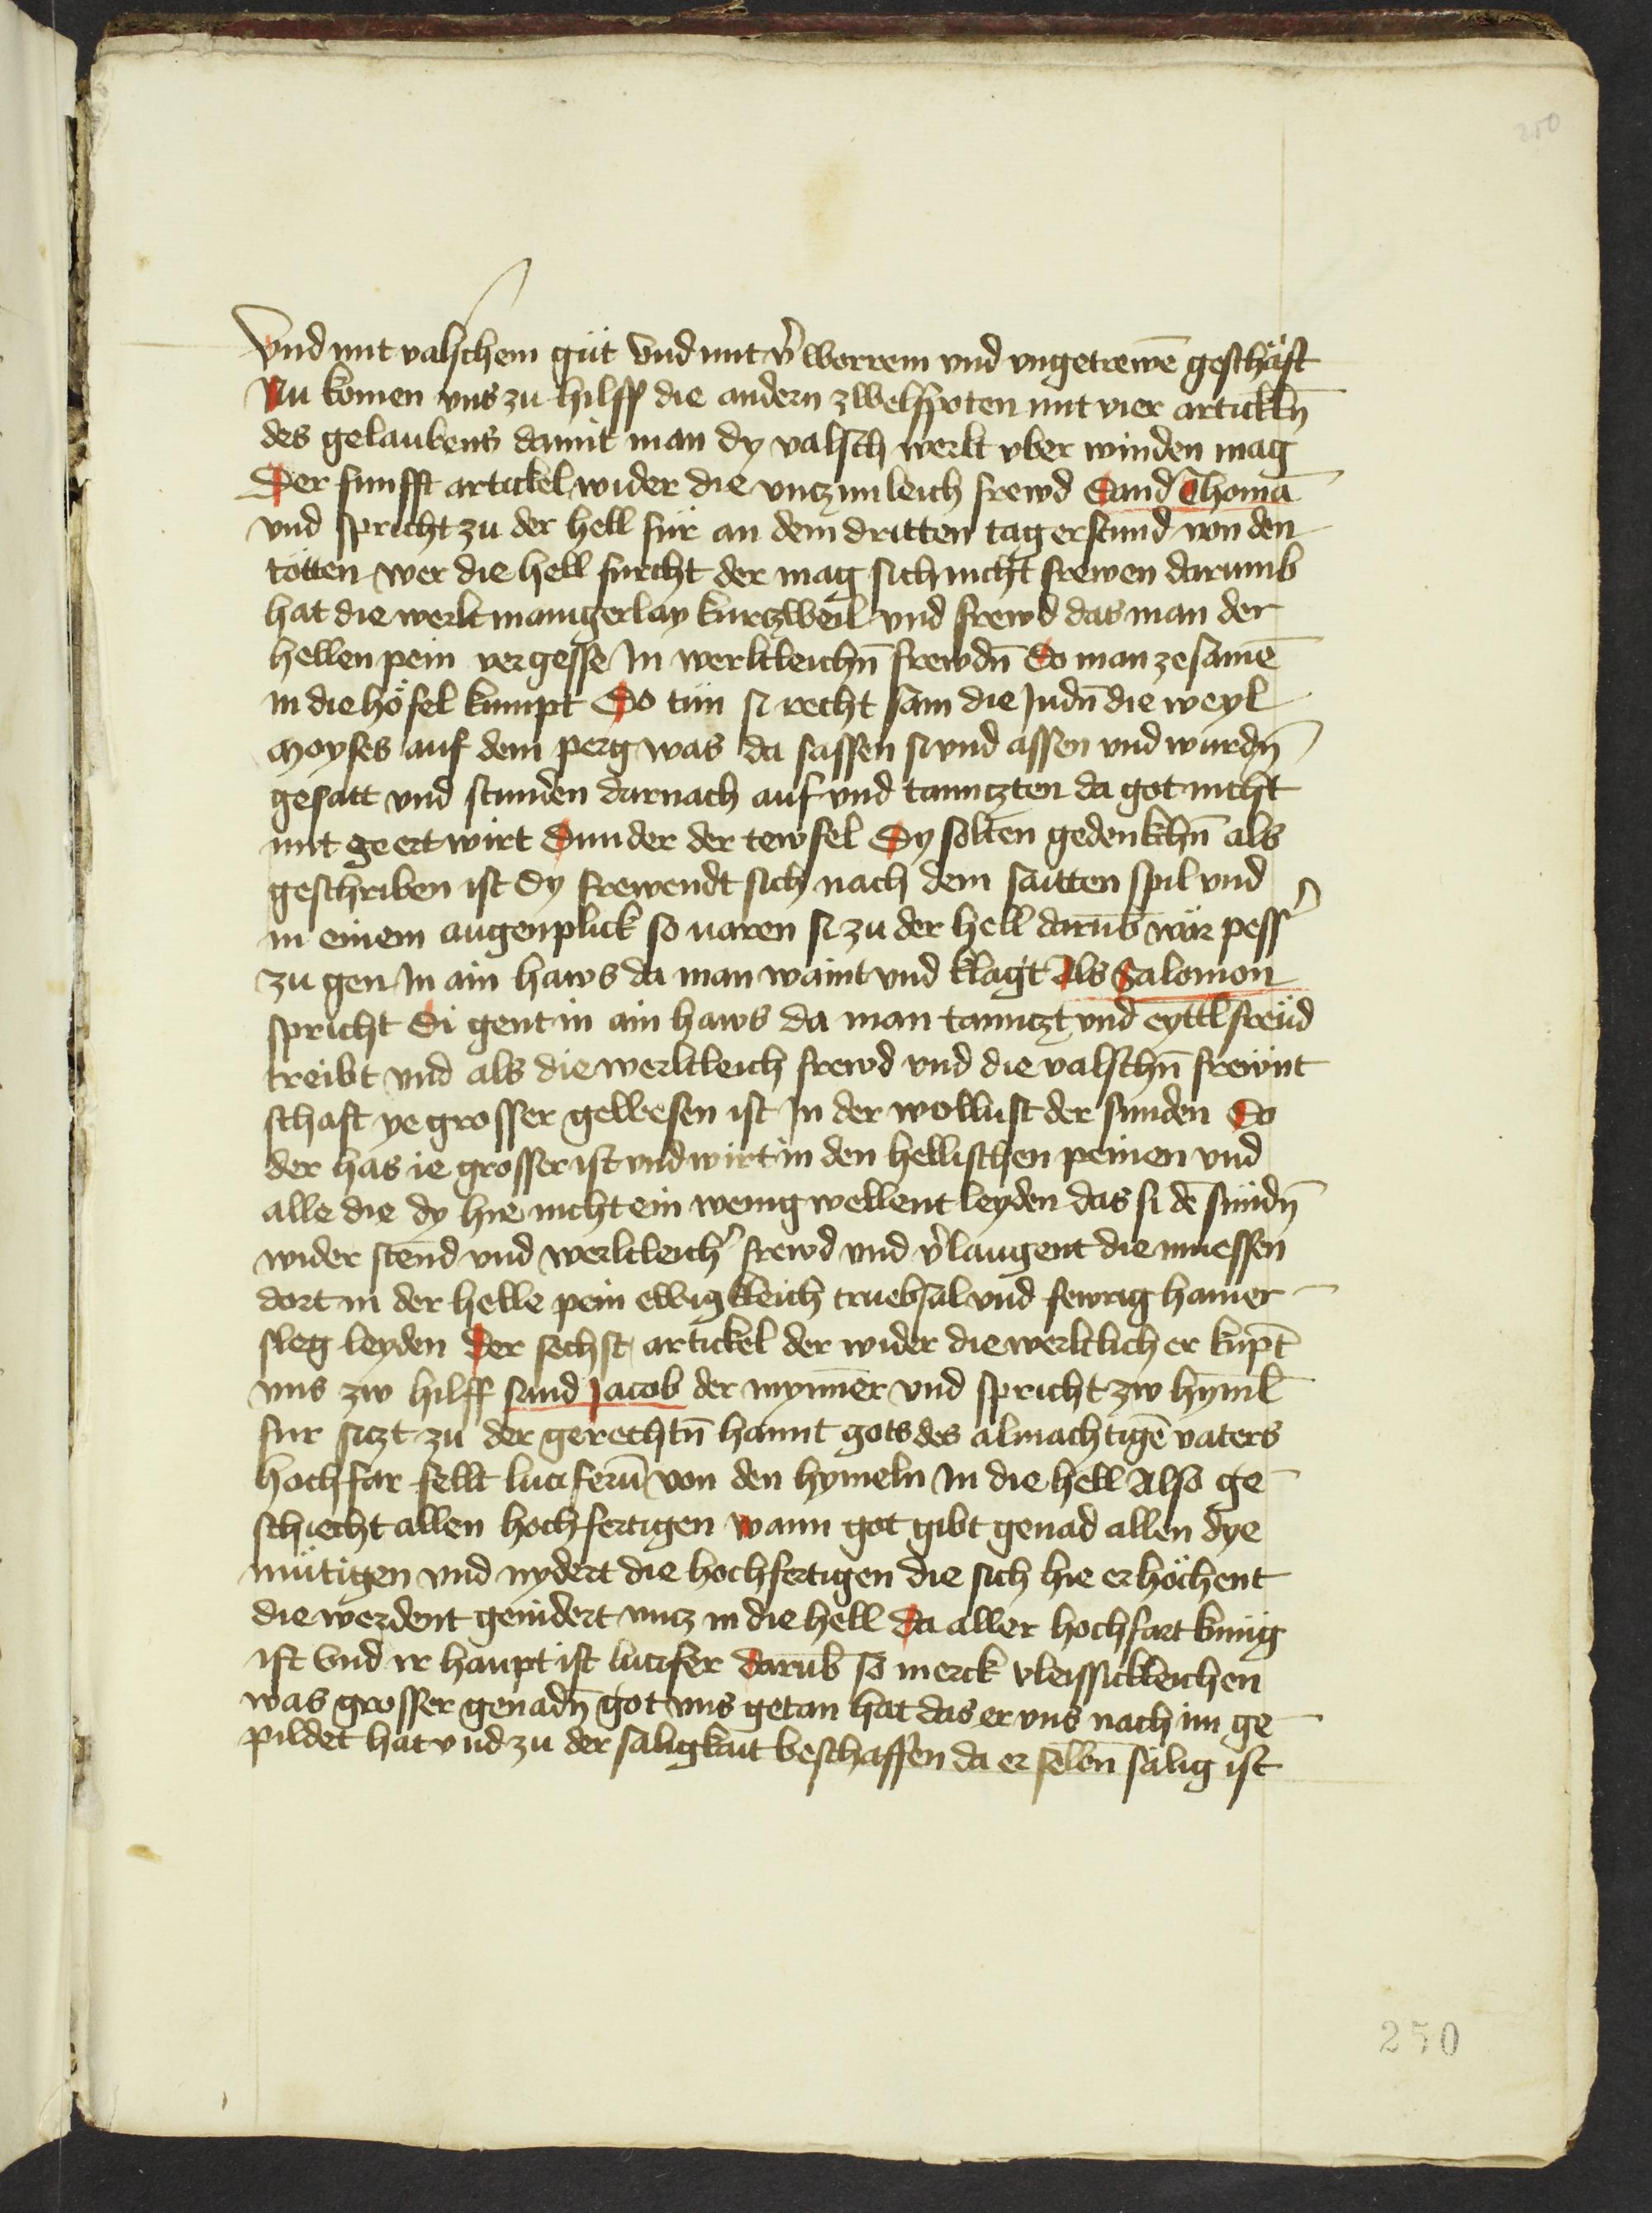 250
Vnd mit valschem güt Vnd mit v̾worrem vnd vngetrewē geschäft
Nu komen vns zu hilff die andern zwelfpoten mit vier artickln̄
des gelaubens damit man dy valsch werlt vber winden mag
Der funfft artickel wider die vnczimleich frewd Sand Thomā
vnd spricht zu der hell für an dem dritten tag erstund von den
tötten wer die hell furcht der mag sich nicht frewen darumb
hat die werlt manigerlay kurczweil vnd frewd das man der
hellen pein vergesse In werltleichn̄ frewdn̄ So man zesamē
in die höfel kumpt So tün si recht sam die Judn̄ die weyl
Moyses auf dem perg was da sassen si vnd assen vnd wurdn̄
gesatt vnd stunden darnach auf vnd tannczten da got nicht
mit geert wirt Sunder der tewfel Dy solten gedenkchn̄ als
geschriben ist Dy frewendt sich nach dem saitten spil vnd
in einem augenplick so varen si zu der hell darūb wär pess̾
zu gen In ain haws da man waint vnd klagt Als Salomon
spricht Di gent in ain haws da man tannczt vnd eyttl freüd
treibt vnd als die werltleich frewd vnd die valschn̄ frewnt
schaft ye grosser gewesen ist In der wollust der sunden So
der has ie grosser ist vnd wirt in den hellischen peinen vnd
alle die dy hie nicht ein wenig wellent leyden das si dē sündn̄
wider stend vnd werltleich̾ frewd vnd v̾laugent die muessen
dort in der helle pein ewigkleich truebsal vnd fewrig hamer
sleg leyden Der sechst artickel der wider die werltlich er kūpt
vns zw hilff sand Jacob der mynner vnd spricht zw hyml̄
fur siczt zu der gerechtn̄ hannt gots des almachtigē vaters
hochfar fellt luciferū von den hymeln In die hell Also ge
schiecht allen hochfertigen wann got gibt genad allen dye
mütigen vnd nydert die hochfertigen die sich hie erhöchent
die werdent genidert vncz in die hell da aller hochfart kunig
ist Vnd ir haupt ist lucifer darūb so merck vleissickleichen
was grosser genadn̄ got vns getan hat das er vns nach im ge
pildet hat vnd zu der saligkait beschaffen da er selben sälig ist
250